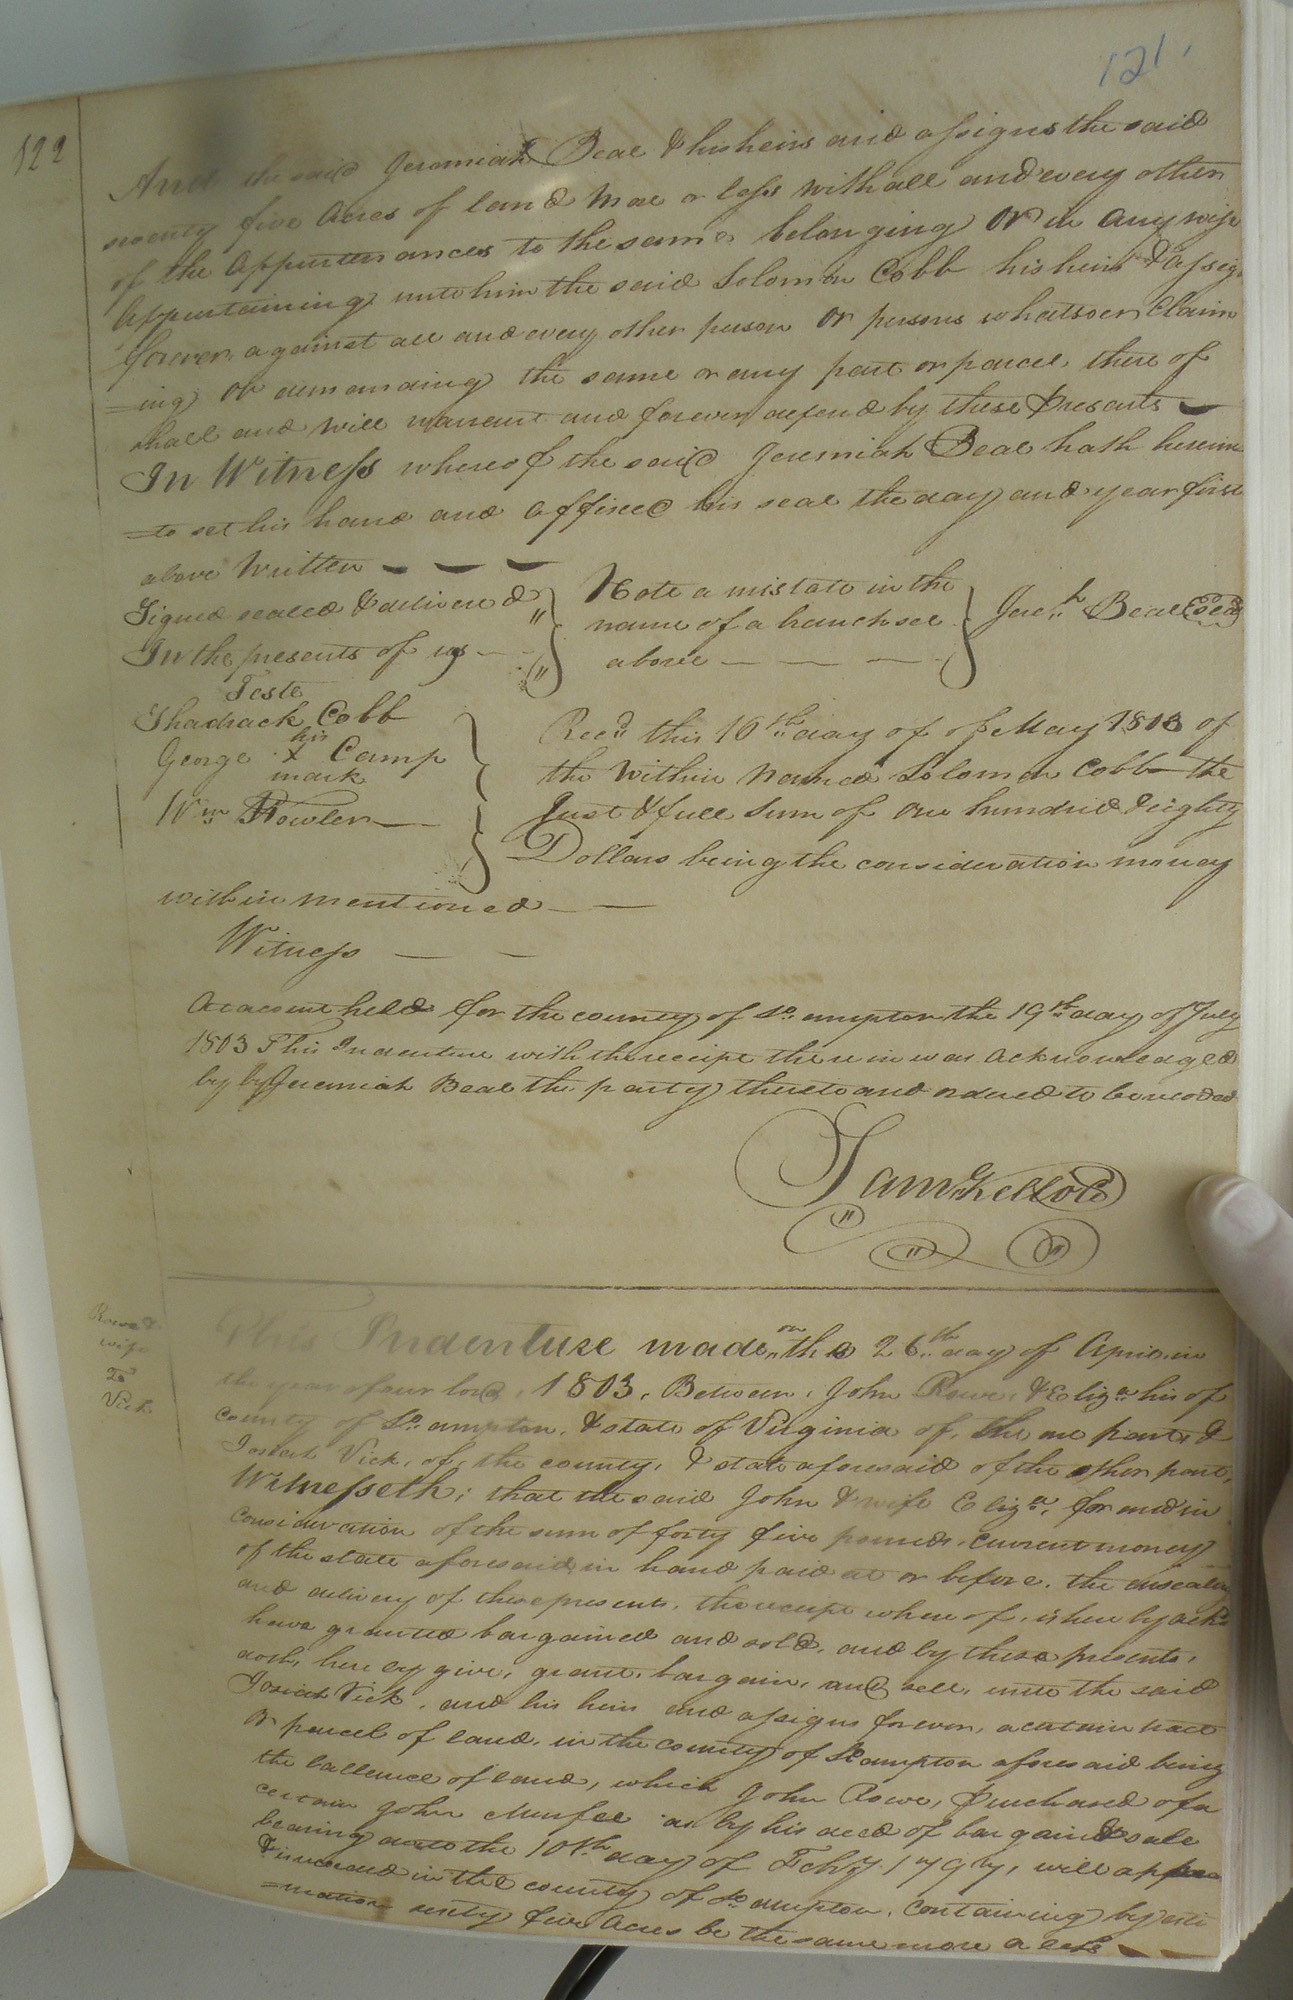 121.
122
And the said Jeremiah Beal & his heirs and assigns the said
seventy five Acres of land more or less with all and every other
of the Appurtenances to the same belonging or in any wise
Appurtaining unto him the said Solomon Cobb his heirs & assign
forever, against all and every other person or persons whatsoer Claim
=ing or demanding the same or any part or parcel there of
shall and will warrant and forever defend by these presents
In Witness whereof the said Jeremiah Beal hath hereun
=to set his hand and affixed his seal the day and year first
above Written
Signed sealed & delivered
In the presents of us
Note a mistate in the
name of a branch see
above
Jerh. Beal Seal
Teste
Shadrack Cobb
George his X mark Camp
Wm Fowler
Recd this 16th day of of May 1803 of
the Within Named Solomon Cobb the
Just & full Sum of One hundrid & eighty
Dollars being the consideration money
within mentioned
Witness
At a court held for the county of So.ampton the 19th day of July
1803 This Indenture with the receipt therein was Acknowledged
by by Jeremiah Beal the party thereto and ordered to be recoded
Saml Kello CC
Rowe &
wife
To
Vick
This Indenture made on the 26th day of April, in
the year of our lord, 1803. Between, John Rowe, & Eliza his of
county of So.ampton, & state of Virginia of, the one part, &
Josiah Vick, of, the county, & state aforesaid of the other part,
Witnesseth; that the said John & wife Eliza. for and in
consideration of the sum of forty five pounds, current money
of the state aforesaid, in hand paid at or before, the ensealing
and delivery of these presents, the receipt where of, is here by ackd
have granted bargained and sold, and by these presents,
doth, here by give, grant, bargain, and sell, unto the said
Josiah Vick, and his heirs and assigns forever, a certain tract
or parcel of land, in the county of So.ampton aforesaid being
the ballence of land, which John Rowe, purchased of a
certain John Murfee as by his deed of bargain & sale
bearing date the 10th day of Feby 1797, will appear
& recorded in the county of So.ampton, containing by esti
=mation seventy five Acres be the same more or less